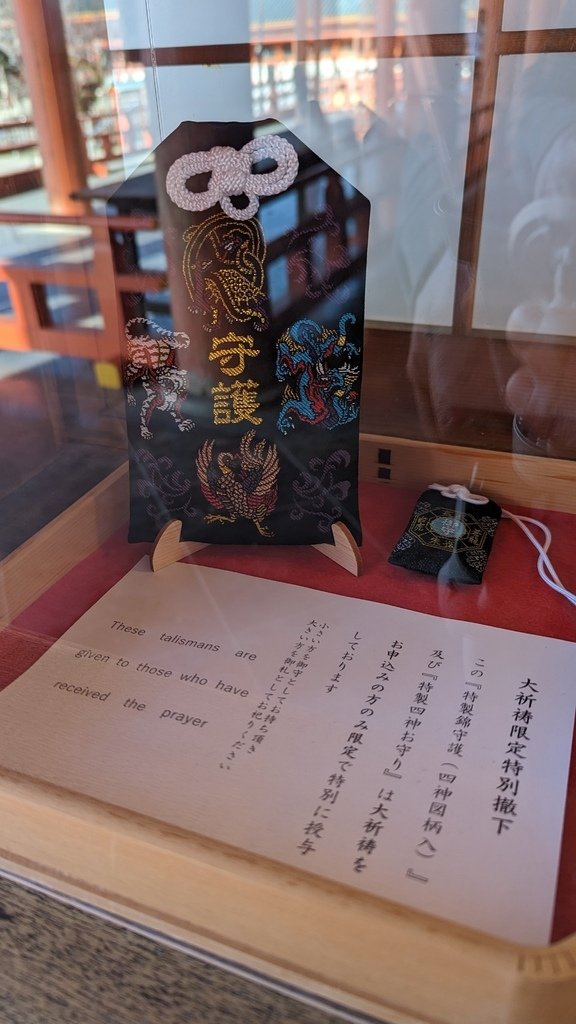 守護
大祈祷限定特別撤下
この『特製錦守護(四神図柄入)』
及び『特製四神お守り』は大祈祷を
お申込みの方のみ限定で特別に授与
しております
小さい方を御守としてお持ち頂き
大きい方を御札としてお祀りください
These talismans are
given to those who have
received the prayer